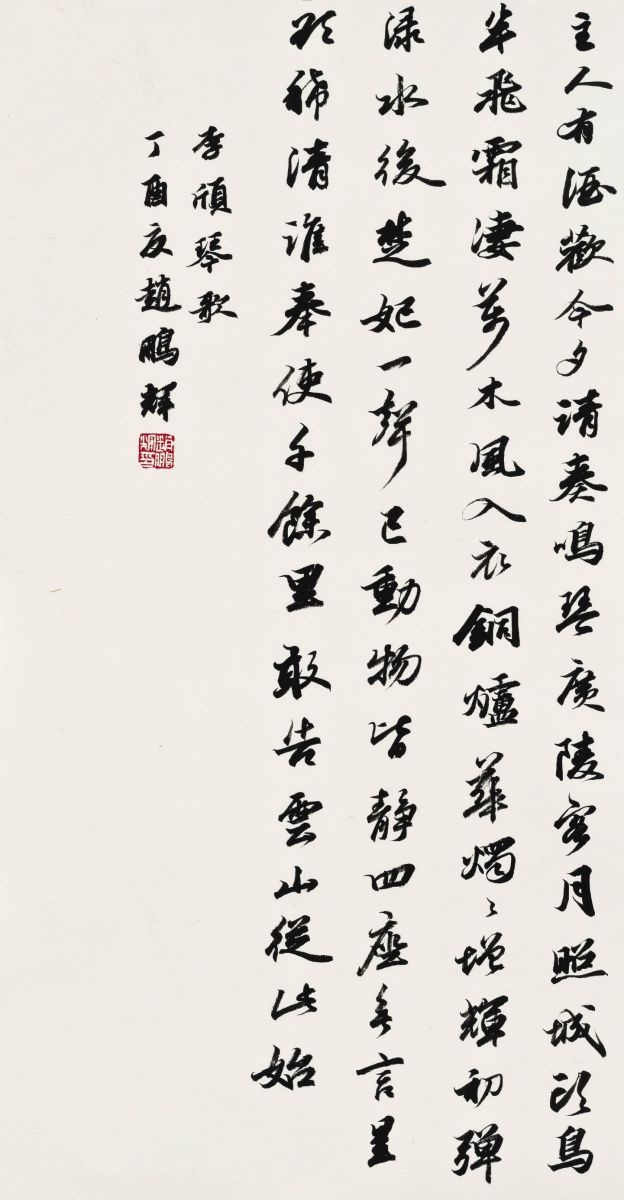 主人有酒歡今夕請奏鳴琴廣陵客月照城頭烏
半飛霜淒萬木風入衣銅爐華燭〻增輝初彈
淥水後楚妃一聲已動物皆靜四座無言星
欲稀清淮奉使千餘里敢告雲山從此始
李頎琴歌
丁酉夏趙鵬輝